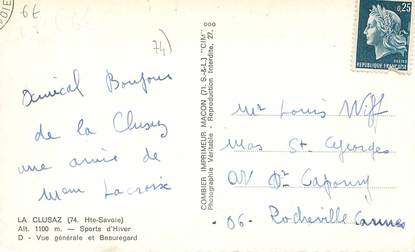 6€
74)
Amical Bonjour
de la Clusaz
une amie de
Mam Lacroix
LA CLUSAZ (74. Hte-Savoie)
Alt. 1100 m. — Sports d'Hiver
D - Vue générale et Beauregard
COMBIER IMPRIMEUR MACON (71. S.-&-L.) "CIM"
Photographie Véritable - Reproduction Interdite. 27.
0,25
REPUBLIQUE FRANÇAISE
Mr Louis Wiff
Mas St Georges
Dr
06 - Rocheville Cannes